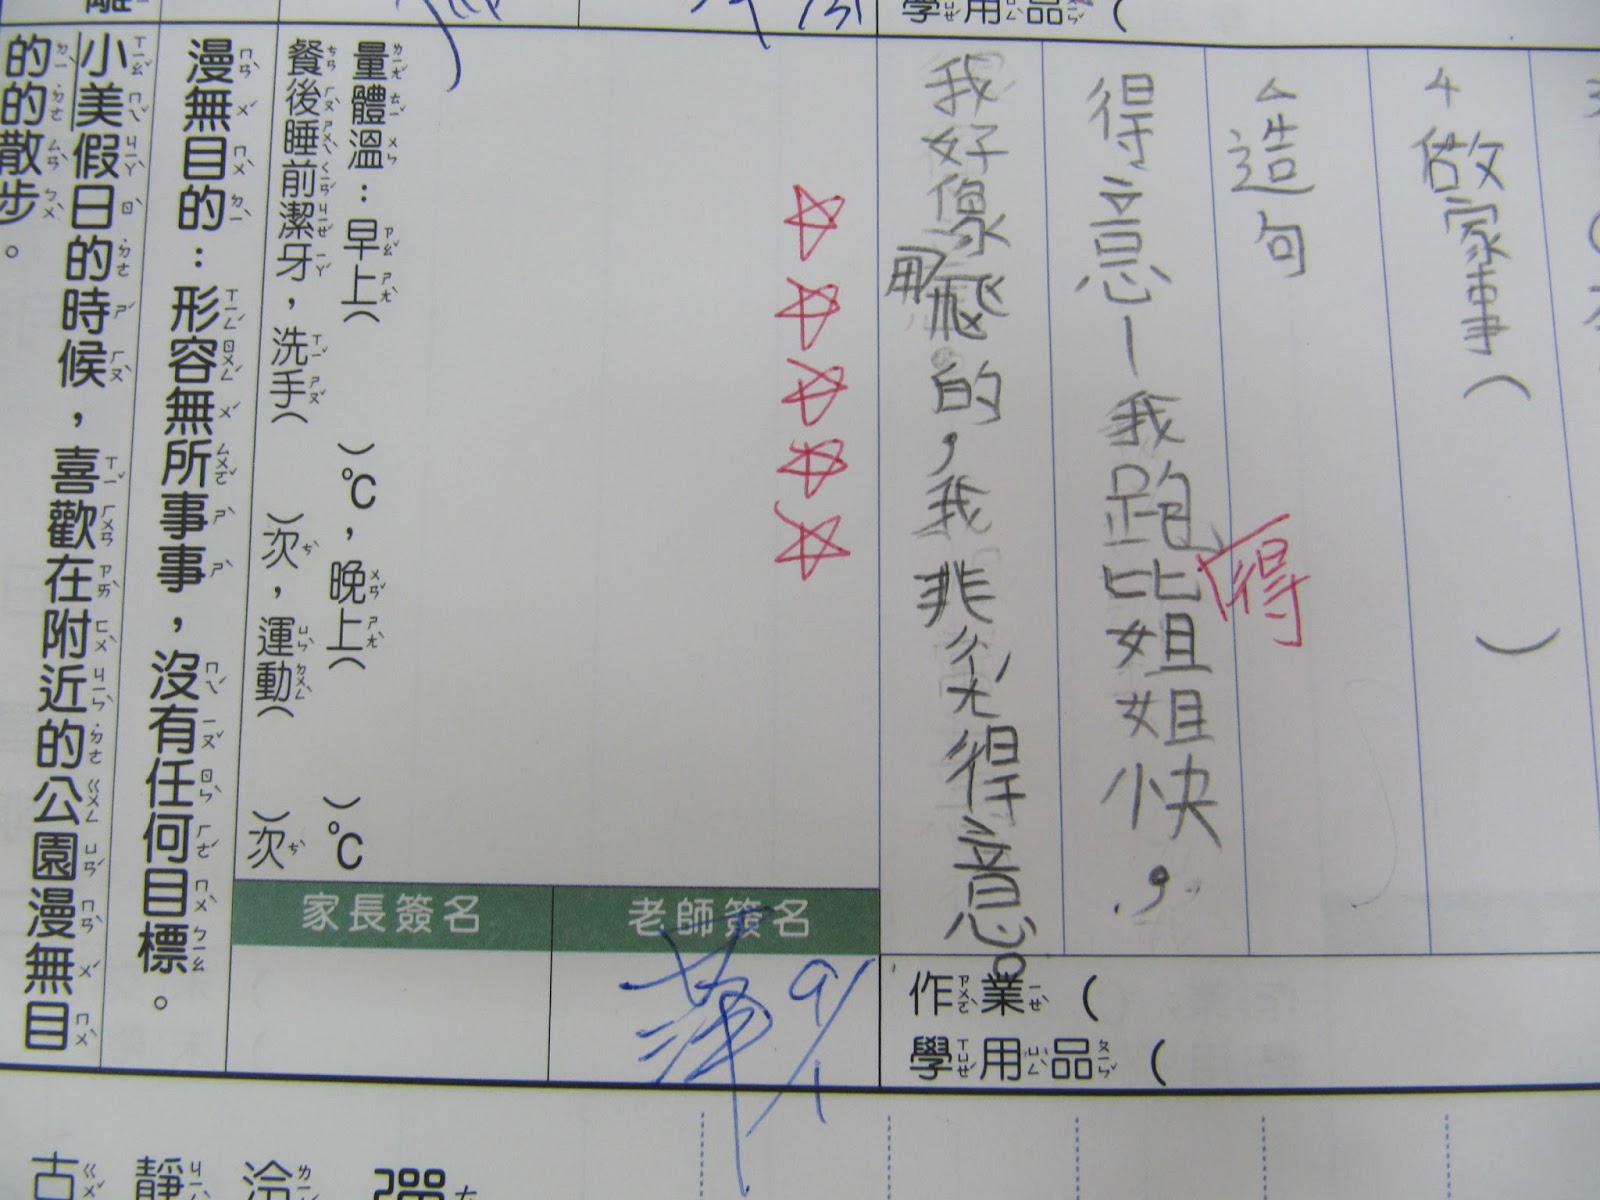 4 做家事( )
△造句
得意－我跑得比姐姐快，
我好像用飛的，我非常得意。
作業(
學用品(
學用品(
量體溫：早上( )℃，晚上( )℃
餐後睡前潔牙，洗手( )次，運動( )次
家長簽名
老師簽名
9/1
漫無目的：形容無所事事，沒有任何目標。
小美假日的時候，喜歡在附近的公園漫無目
的的散步。
古靜冷